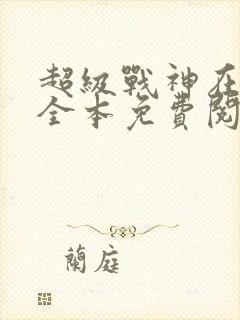 超級戰神在
全本免費閱
蘭庭